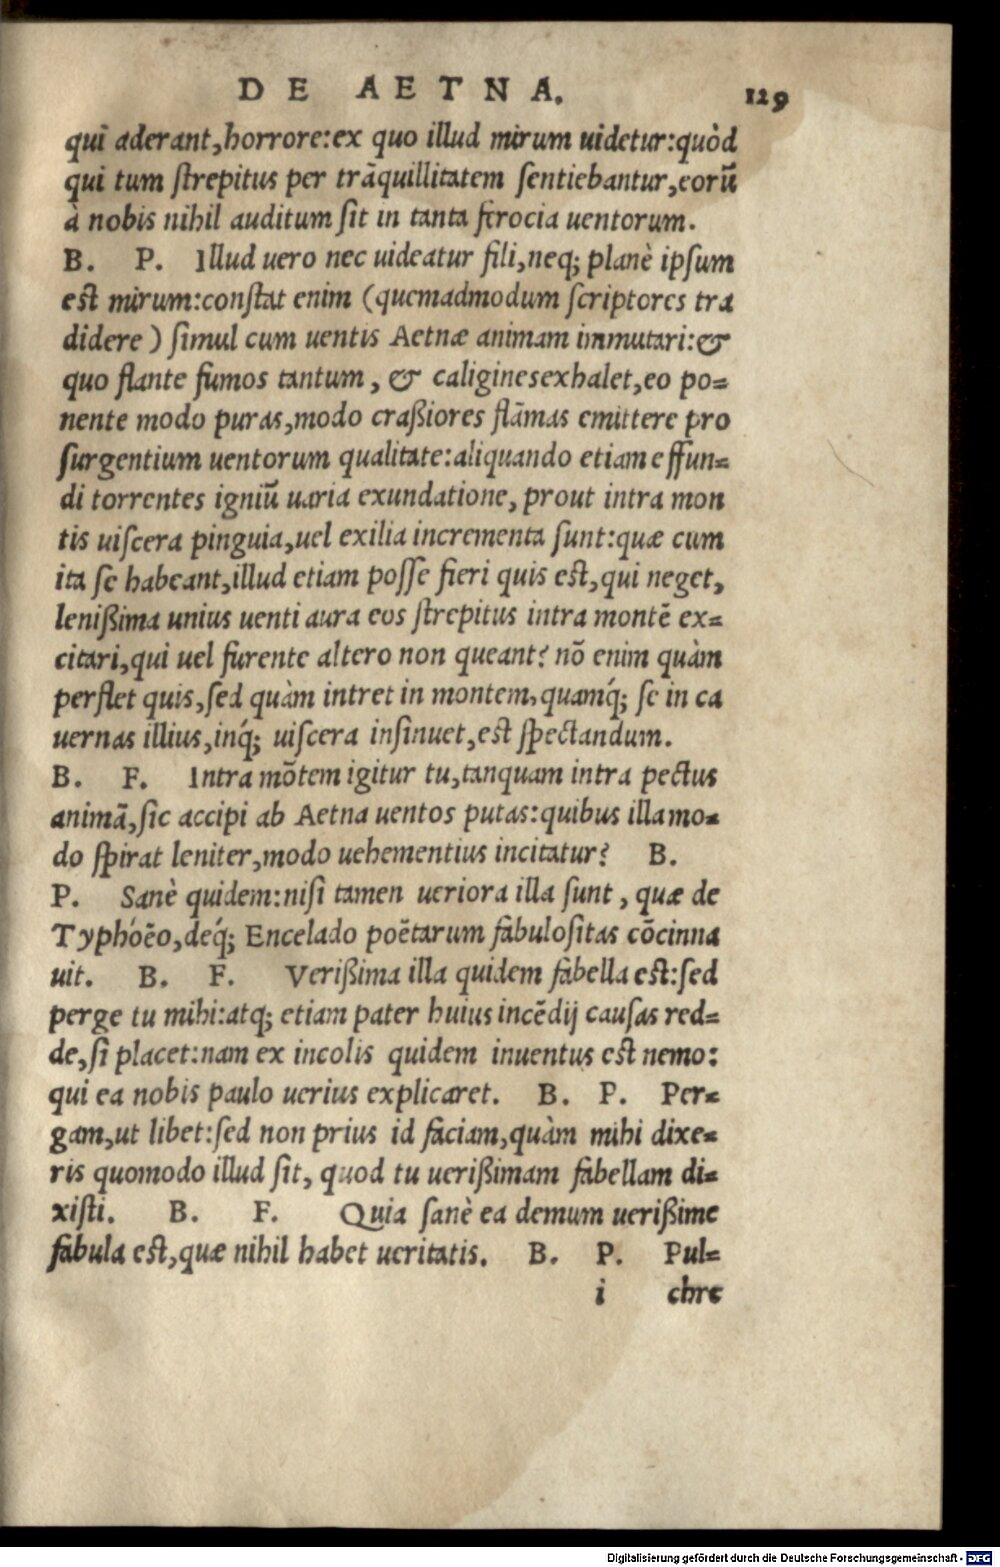 DE AETNA. 129
qui aderant, horrore: ex quo illud mirum uidetur: quòd
qui tum ſtrepitus per trāquillitatem ſentiebantur, eorū
à nobis nihil auditum ſit in tanta ferocia uentorum.
B. P. Illud uero nec uideatur fili, neq; planè ipſum
eſt mirum: conſtat enim (quemadmodum ſcriptores tra
didere) ſimul cum uentis Aetnæ animam immutari: &
quo flante fumos tantum, & caligines exhalet, eo po=
nente modo puras, modo craßiores flāmas emittere pro
ſurgentium uentorum qualitate: aliquando etiam effun=
di torrentes igniū uaria exundatione, prout intra mon
tis uiſcera pinguia, uel exilia incrementa ſunt: quæ cum
ita ſe habeant, illud etiam poſſe fieri quis eſt, qui neget,
lenißima unius uenti aura eos ſtrepitus intra montē ex=
citari, qui uel furente altero non queant? nō enim quàm
perflet quis, ſed quàm intret in montem, quamq́; ſe in ca
uernas illius, inq́; uiſcera inſinuet, eſt ſpectandum.
B. F. Intra mōtem igitur tu, tanquam intra pectus
animā, ſic accipi ab Aetna uentos putas: quibus illa mo=
do ſpirat leniter, modo uehementius incitatur? B.
P. Sanè quidem: niſi tamen ueriora illa ſunt, quæ de
Typhóēo, deq́; Encelado poētarum fabuloſitas cōcinna
uit. B. F. Verißima illa quidem fabella eſt: ſed
perge tu mihi: atq; etiam pater huius incēdij cauſas red=
de, ſi placet: nam ex incolis quidem inuentus eſt nemo:
qui ea nobis paulo uerius explicaret. B. P. Per=
gam, ut libet: ſed non prius id faciam, quàm mihi dixe=
ris quomodo illud ſit, quod tu uerißimam fabellam di=
xiſti. B. F. Quia ſanè ea demum uerißime
fabula eſt, quæ nihil habet ueritatis. B. P. Pul=
i chre
Digitalisierung gefördert durch die Deutsche Forschungsgemeinschaft - DFG